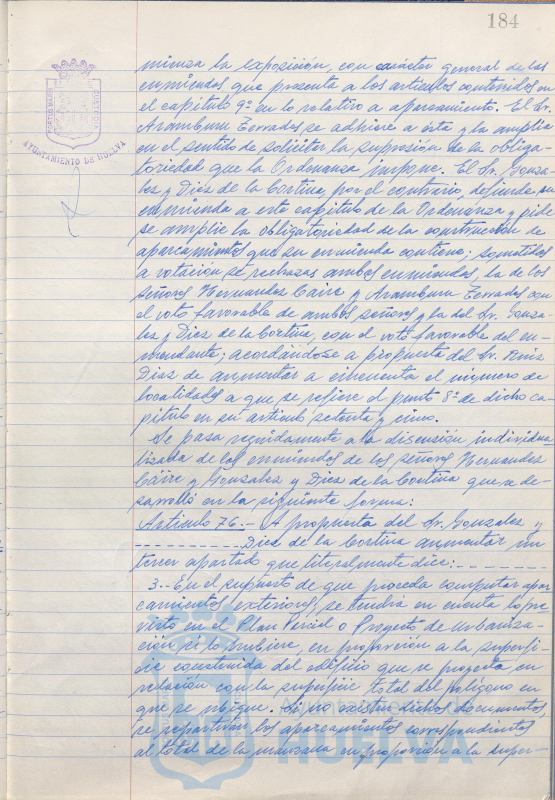 184
AYUNTAMIENTO DE HUELVA
mienza la exposición, con carácter general de las
enmiendas que presenta a los artículos contenidos en
el capítulo 9º en lo relativo a aparcamiento. El Sr.
Aramburu Terrades, se adhiere a ésta y la amplia
en el sentido de solicitar la supresión de la obliga-
toriedad que la Ordenanza impone. El Sr. Gonza-
lez y Diez de la Cortina, por el contrario, defiende su
enmienda a este capítulo de la Ordenanza y pide
se amplie la obligatoriedad de la construcción de
aparcamientos que su enmienda contiene; sometidas
a votación se rechazas ambas enmiendas, la de los
señores Hernandez Cáire y Aramburu Terrades con
el voto favorable de ambos señores y la del Sr. Gonza-
lez y Diez de la Cortina, con el voto favorable del en-
mendante; acordándose a propuesta del Sr. Ruiz
Diaz de aumentar a cincuenta el número de
localidades a que se refiere el punto 8º de dicho ca-
pítulo en su articulo setenta y cinco.
Se pasa seguidamente a la discusión individua
lizada de las enmiendas de los señores Hernandez
Cáire y Gonzalez y Diez de la Cortina que se de-
sarrolló en la siguiente forma:
Artículo 76.- A propuesta del Sr. Gonzalez y
Diez de la Cortina aumentar un
tercer apartado que literalmente dice:
3.- En el supuesto de que proceda computar apar
camientos exteriores, se tendrá en cuenta lo pre
visto en el Plan Parcial o Proyecto de Urbaniza-
ción si lo hubiere, en proporción a la superfi-
cie construida del edificio que se proyecta en
relación con la superficie total del polígono en
que se ubique. Si no existen dichos documentos,
se repartirán los aparcamientos correspondientes
al total de la manzana en proporción a la super-
HUELVA